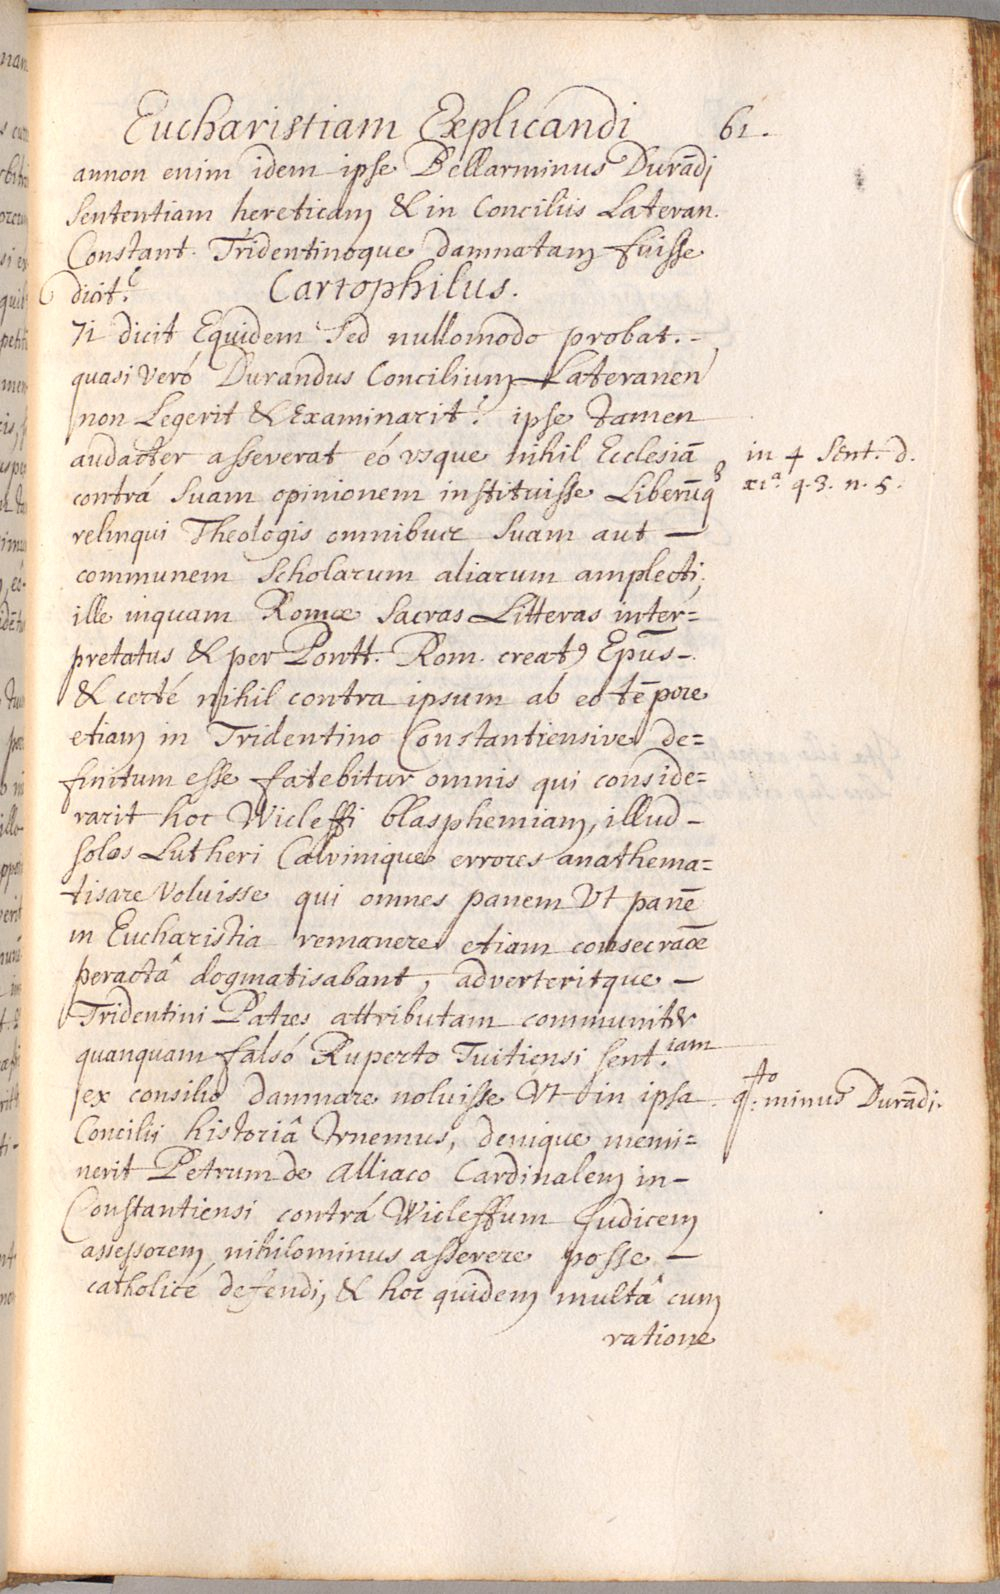 Eucharistiam Explicandi 61.
annon enim idem ipse Bellarminus Durãdi
Sententiam hereticam & in Conciliis Lateran.
Constant. Tridentinoque damnatam fuisse
dicit?
Cartophilus.
71 dicit Equidem Sed nullomodo probat. -
quasi veró Durandus Concilium Lateranen
non Legerit & Examinarit? ipse tamen
audacter asseverat eó vsque nihil Ecclesiã
in 4 Sent. d.
contrá Suam opinionem instituisse Liberũq
xi.a q. 3. n. 5.
relinqui Theologis omnibus Suam aut —
communem Scholarum aliarum amplecti,
ille inquam Romæ Sacras Litteras inter=
pretatus & per Pontt. Rom. creatꝰ Epũs -.
& certé nihil contra ipsum ab eo tẽpore
etiam in Tridentino Constantiensive de=
finitum esse fatebitur omnis qui conside=
rarit hoc Wicleffi blasphemiam, illud -
solos Lutheri Calvinique errores anathema=
tisare Voluisse qui omnes panem Vt panẽ
in Eucharistia remanere etiam consecraõe
peractâ dogmatisabant, adverteritque -
Tridentini Patres attributam communiter
quanquam falsó Ruperto Tuitiensi Sent.iam
ex consilio damnare noluisse Vt in ipsa
q.to minus Durãdi.
Concilii historiâ Trnemus, denique memi=
nerit Petrum de Alliaco Cardinalem in -
Constantiensi contrá Wicleffum Judicem
assessorem, nihilominus asserere posse —
catholicé defendi, & hoc quidem multâ cum
ratione